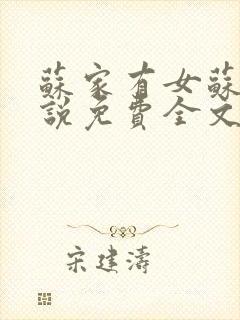 蘇家有女蘇
說免費全文
宋建濤